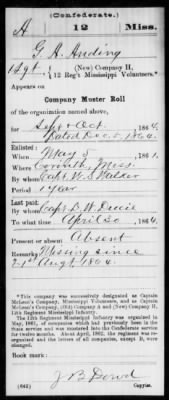 (Confederate.)
A 12 Miss.
G. A. Anding
1 Sgt., (New) Company H,
12 Reg't Mississippi Volunteers.*
Appears on
Company Muster Roll
of the organization named above,
for Sept & Oct, 1864.
Dated Dec. 5, 1864
Enlisted:
When May 5, 1861.
Where Corinth, Miss.
By whom Capt. W. S. Walker
Period 1 year
Last paid:
By whom Capt. D. W.
To what time April 30, 1864.
Present or absent Absent
Remarks: Missing since
21st Aug't 1864.
*This company was successively designated as Captain
McLean's Company, Mississippi Volunteers, and as Captain
McLean's Company, (Old) Company A and (New) Company H,
12th Regiment Mississippi Infantry.
The 12th Regiment Mississippi Infantry was organized in
May, 1861, of companies which had previously been in the
State service and was mustered into the Confederate service
for twelve months. About April, 1862, the regiment was re-
organized and the letters of all companies, except B, were
changed.
Book mark:
(642) J B Dowd
Copyist.